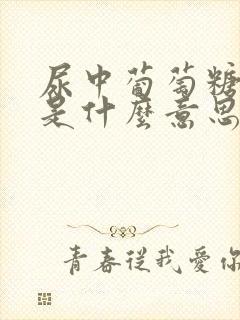 尿中葡萄糖
是什麼意思
青春從我愛你